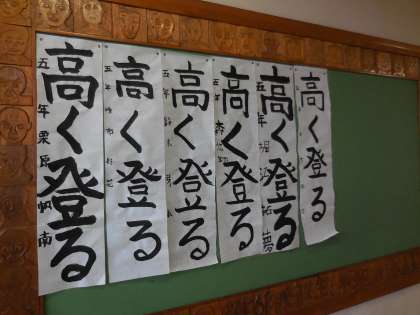 高く登る
五年 栗原帆南
高く登る
五年
高く登る
五年
高く登る
五年
高く登る
五年
高く登る